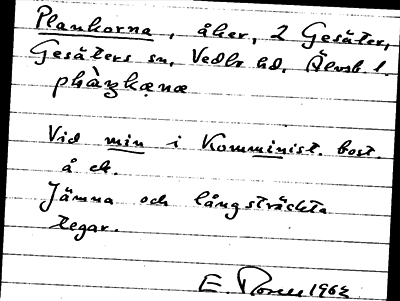 Plankorna, åker, 2 Gesäter,
Gesäters sn, Vedbo hd, Älvsb. l.
Vid min i Komminist. bost.
å ek.
Jämna och långsträckta
tegar.
E 1962